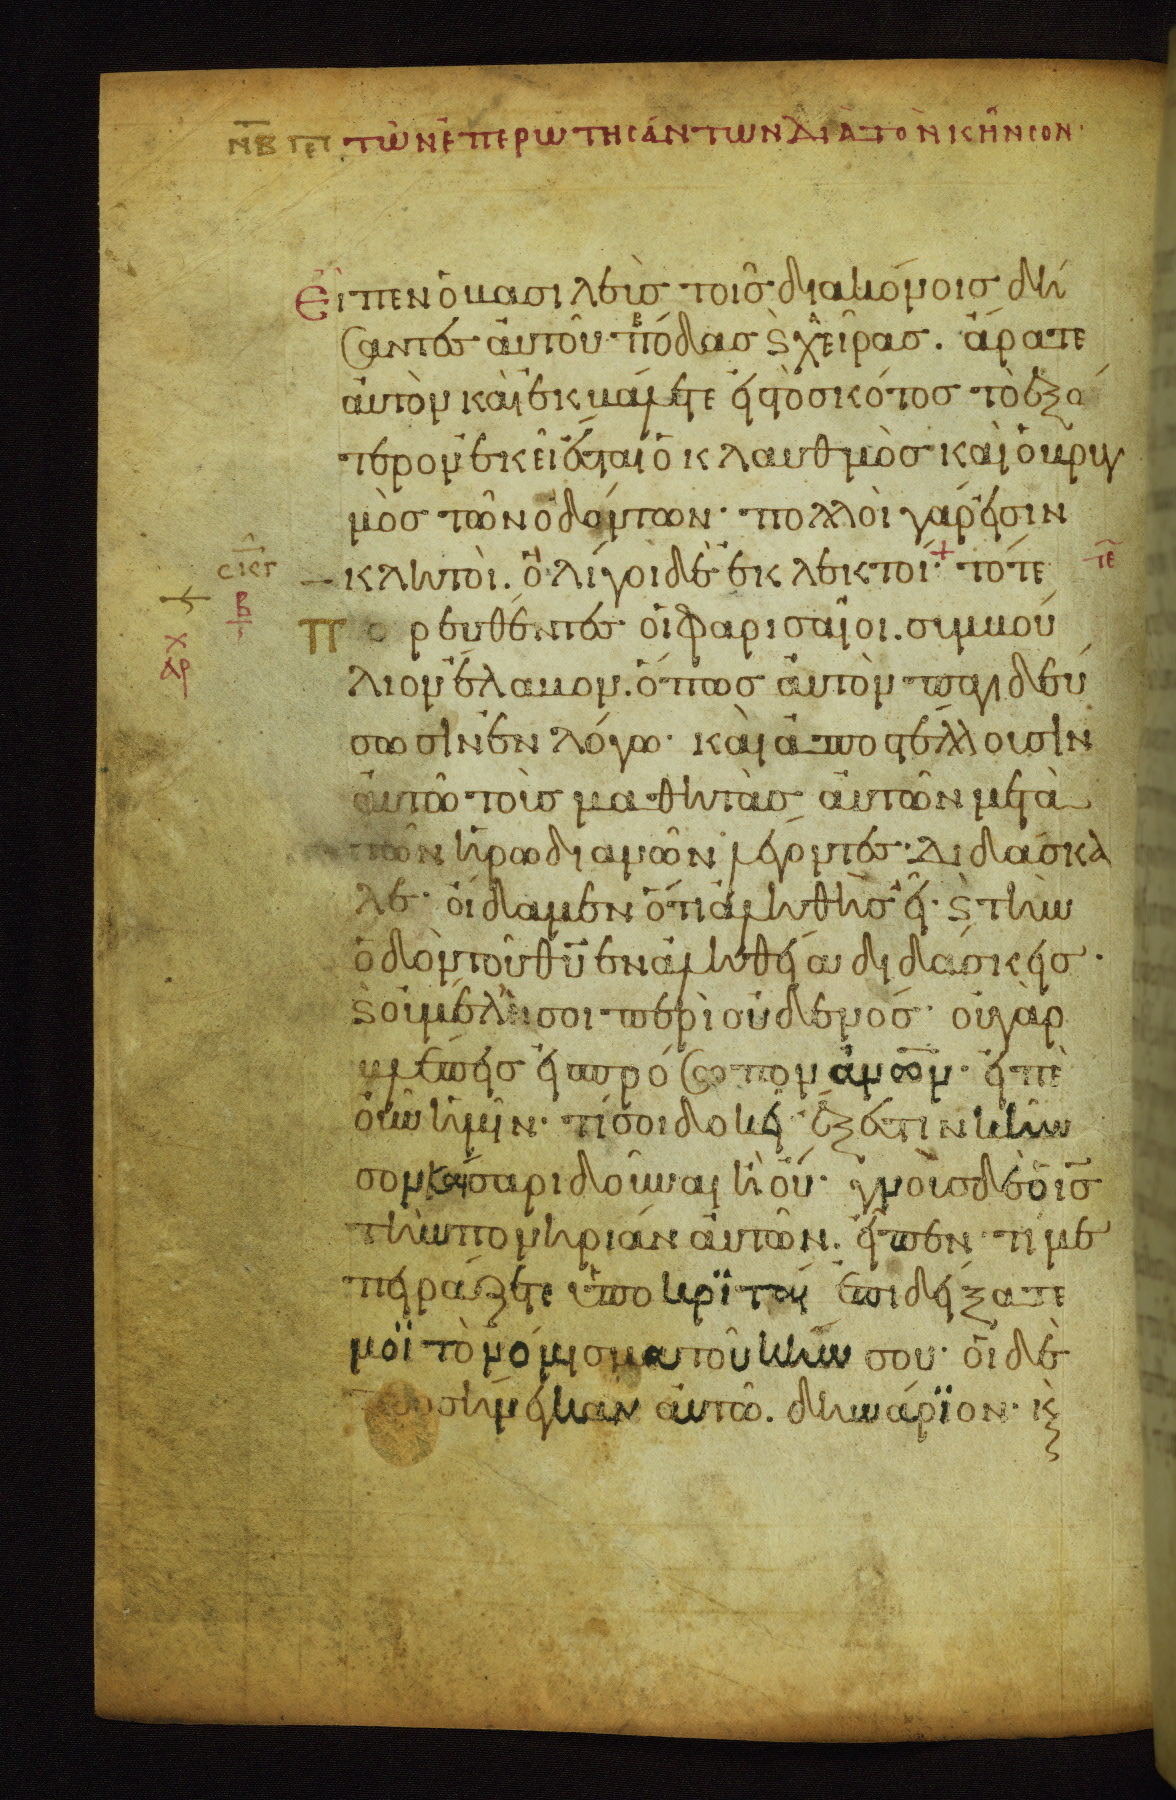 ΝΒ ΠΕΡ ΤῶΝ ἘΠΕΡΩΤΗΣΆΝΤΩΝ ΔΙΑ ΤῸ Ν ΚΗ͂ΝΣΟΝ·
Εἶπεν ὁ βασιλεὺς τοῖς διακόνοις δή
σαντες αὐτοῦ πόδας ϗ χεῖρας. ἄρατε
αὐτὸν καὶ ἐκβάλετε εἰς τὸ σκότος τὸ ἐξώ
τερον ἐκεῖ ἔσται ὁ κλαυθμὸς καὶ ὁ βρυγ
μὸς τῶν ὀδόντων· πολλοὶ γάρ εἰσιν
κλητοὶ. ὀλίγοι δὲ ἐκλεκτοί· τότε
Πορευθέντες οἱ φαρισαῖοι. συμβού
λιον ἔλαβον. ὅπως αὐτὸν παγιδεύ
σωσιν ἐν λόγω· καὶ ἀποστέλλουσιν
αὐτῶ τοὺς μαθητὰς αὐτῶν μετὰ
τῶν ἡρωδιανῶν λέγοντες· Διδάσκα
λε· οἴδαμεν ὅτι ἀληθὴς εἶ· ϗ τὴν
ὁδὸν τοῦ θῦ ἐν ἀληθεία διδάσκεις·
ϗ οὐ μέλει σοι περὶ οὐδενός· οὐ γὰρ
βλέπεις εἰς πρόσωπον ἀνῶν· εἰπὲ
οὖν ἡμῖν· τί σοι δοκεῖ· ἔξεστιν κῆν
σον καίσαρι δοῦναι ἢ οὔ· γνοὺς δὲ ὁ ἰς
τὴν πονηρίαν αὐτῶν. εἶπεν τί με
πειράζετε ὑποκριταί ἐπιδείξατε
μοὶ τὸ νόμισμα τοῦ κήνσου· οἱ δὲ
προσήνεγκαν αὐτῶ. δηνάριον· ϗ